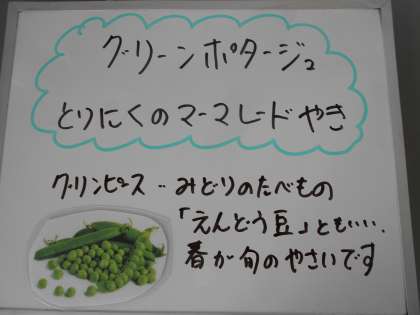 グリーンポタージュ
とりにくのマーマレードやき
グリンピース‥みどりのたべもの
「えんどう豆」ともいい、
春が旬のやさいです